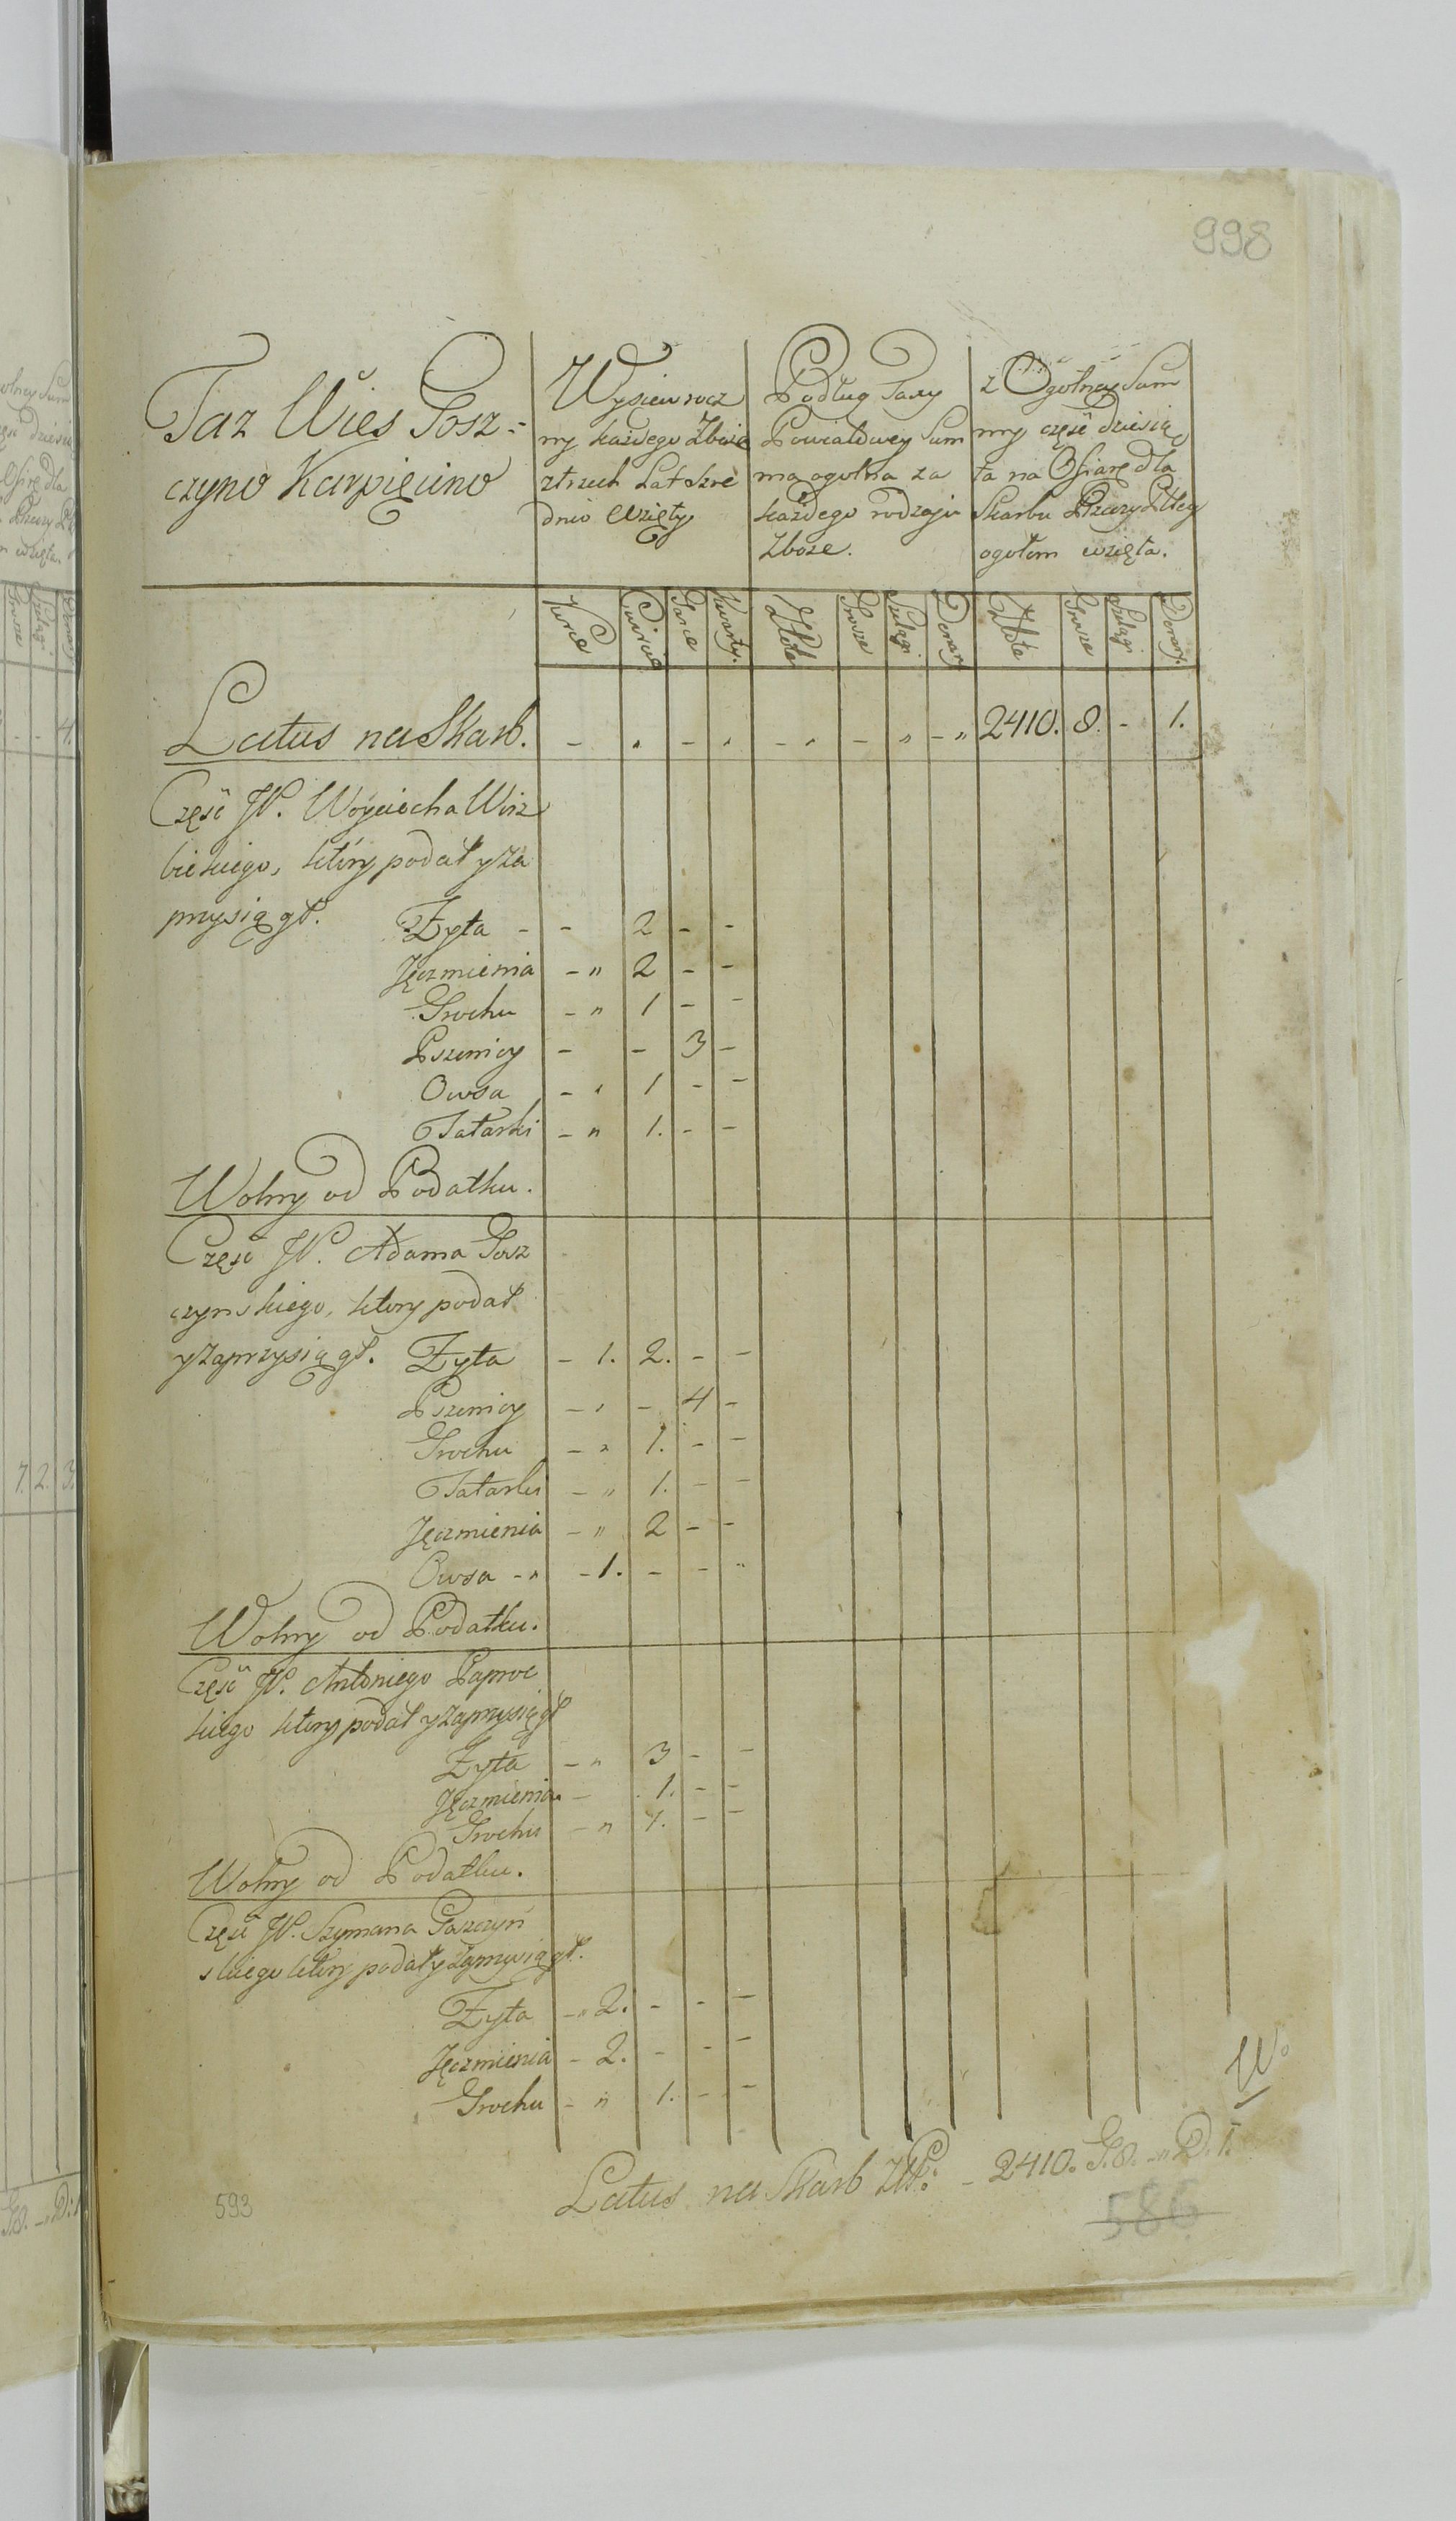 998
Taz Wies Gosz=
czyno Karpięcino
Wysiew rocz
ny każdego Zboża
ztrzech Lat Szre
dnio wzięty
Podług Taxy
Powiatowey Sum
ma ogolna za
każdego rodzaju
Zboże.
z Ogolney Sum
my część dziesią
ta na Ofiarę dla
Skarbu Rzeczy Pltey
ogołem wzięta.
Korce Cwierci Garce Kwarty. Złote Grosze Szelągi Denary Złote Grosze Szelągi Denary.
Latus na Skarb. - " - " - " - " - " 2410. 8. - 1.
Część JP. Woyciecha Wirz
bickiego, ktöry podał y za
przysiągł. Zyta - - 2 - -
Jęczmienia - " 2 - -
Grochu - " 1 - -
Pszenicy - - 3 -
Owsa - " 1 - -
Tatarki - " 1. - -
Wolny od Podatku.
Część JP. Adama Gosz
czynskiego, ktory podał
y zaprzysiągł. Zyta - 1. 2. - -
Pszenicy - " - 4 -
Grochu - " 1. - -
Tatarki - " 1. - -
Jęczmienia - " 2 - -
Owsa - " - 1. - - "
Wolny od Podatku.
Część JP. Antoniego Paproc
kiego ktory podał y zaprzysiągł
Zyta - " 3 - -
Jęczmienia - 1. - -
Grochu - " 1. - -
Wolny od Podatku.
Część JP. Szymana Goszczyń
skiego ktöry podał y zaprzysiągł.
Zyta - " 2. - - -
Jęczmienia - 2. - - -
Grochu - " 1. - -
W.
Latus na Skarb Złł: - 2410. G. 8. - " D. 1.
593
586